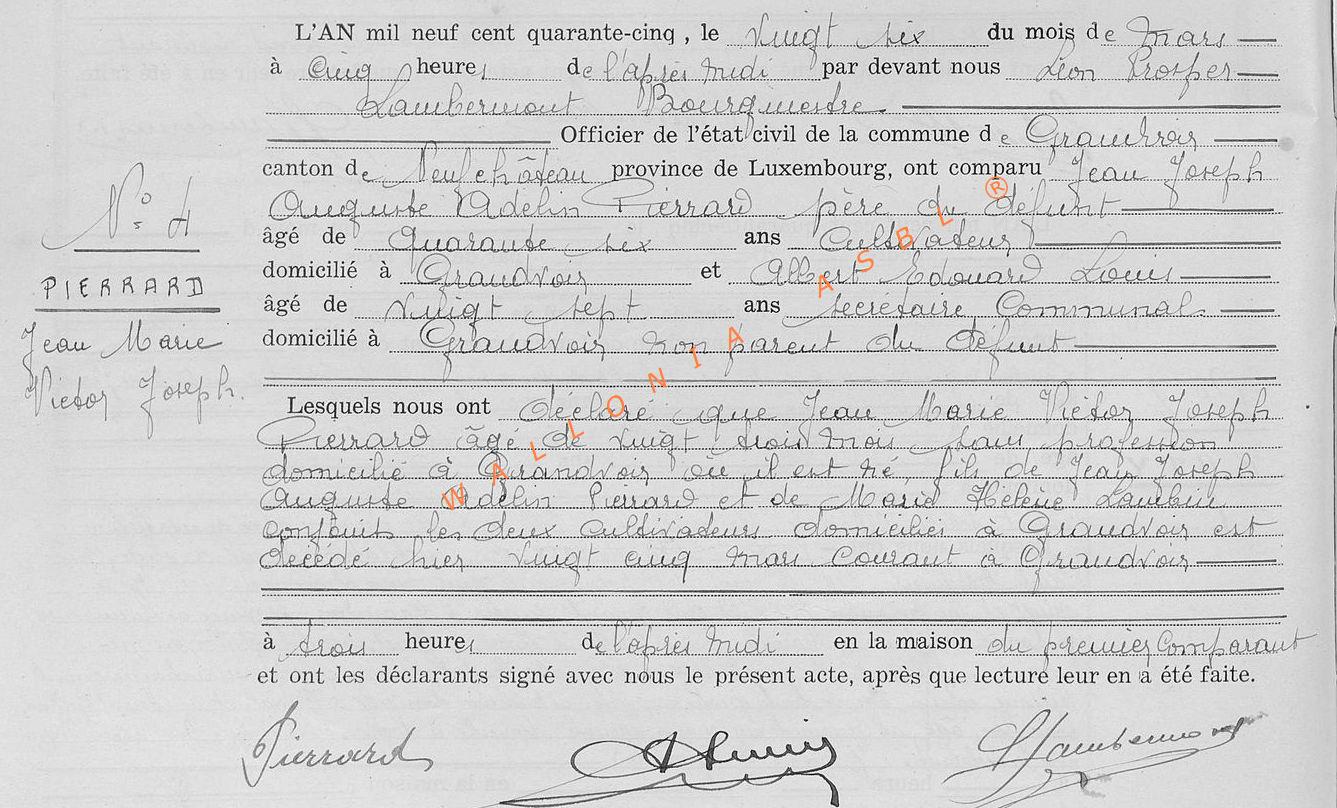 L'AN mil neuf cent quarante-cinq, le vingt six du mois de Mars
à cinq heures de l'après midi par devant nous Léon Prosper
Lambermont Bourgmestre
Officier de l'état civil de la commune de Grandvoir
canton de Neufchâteau province de Luxembourg, ont comparu Jean Joseph
Auguste Adelin Pierrard père du défunt
âgé de quarante six ans Cultivateur
N° 4
domicilié à Grandvoir et Albert Edouard Louis
PIERRARD
âgé de vingt sept ans secrétaire Communal
Jean Marie
domicilié à Grandvoir non parent du défunt
Victor Joseph.
Lesquels nous ont déclaré que Jean Marie Victor Joseph
Pierrard âgé de vingt trois mois sans profession
domicilié à Grandvoir où il est né, fils de Jean Joseph
Auguste Adelin Pierrard et de Marie Hélène Lambin
conjoints les deux cultivateurs domiciliés à Grandvoir est
décédé hier vingt cinq mars courant à Grandvoir
à trois heures de l'après midi en la maison du premier Comparant
et ont les déclarants signé avec nous le présent acte, après que lecture leur en a été faite.
Pierrard ALouis Lambermont
WALLONIA ASBL ®